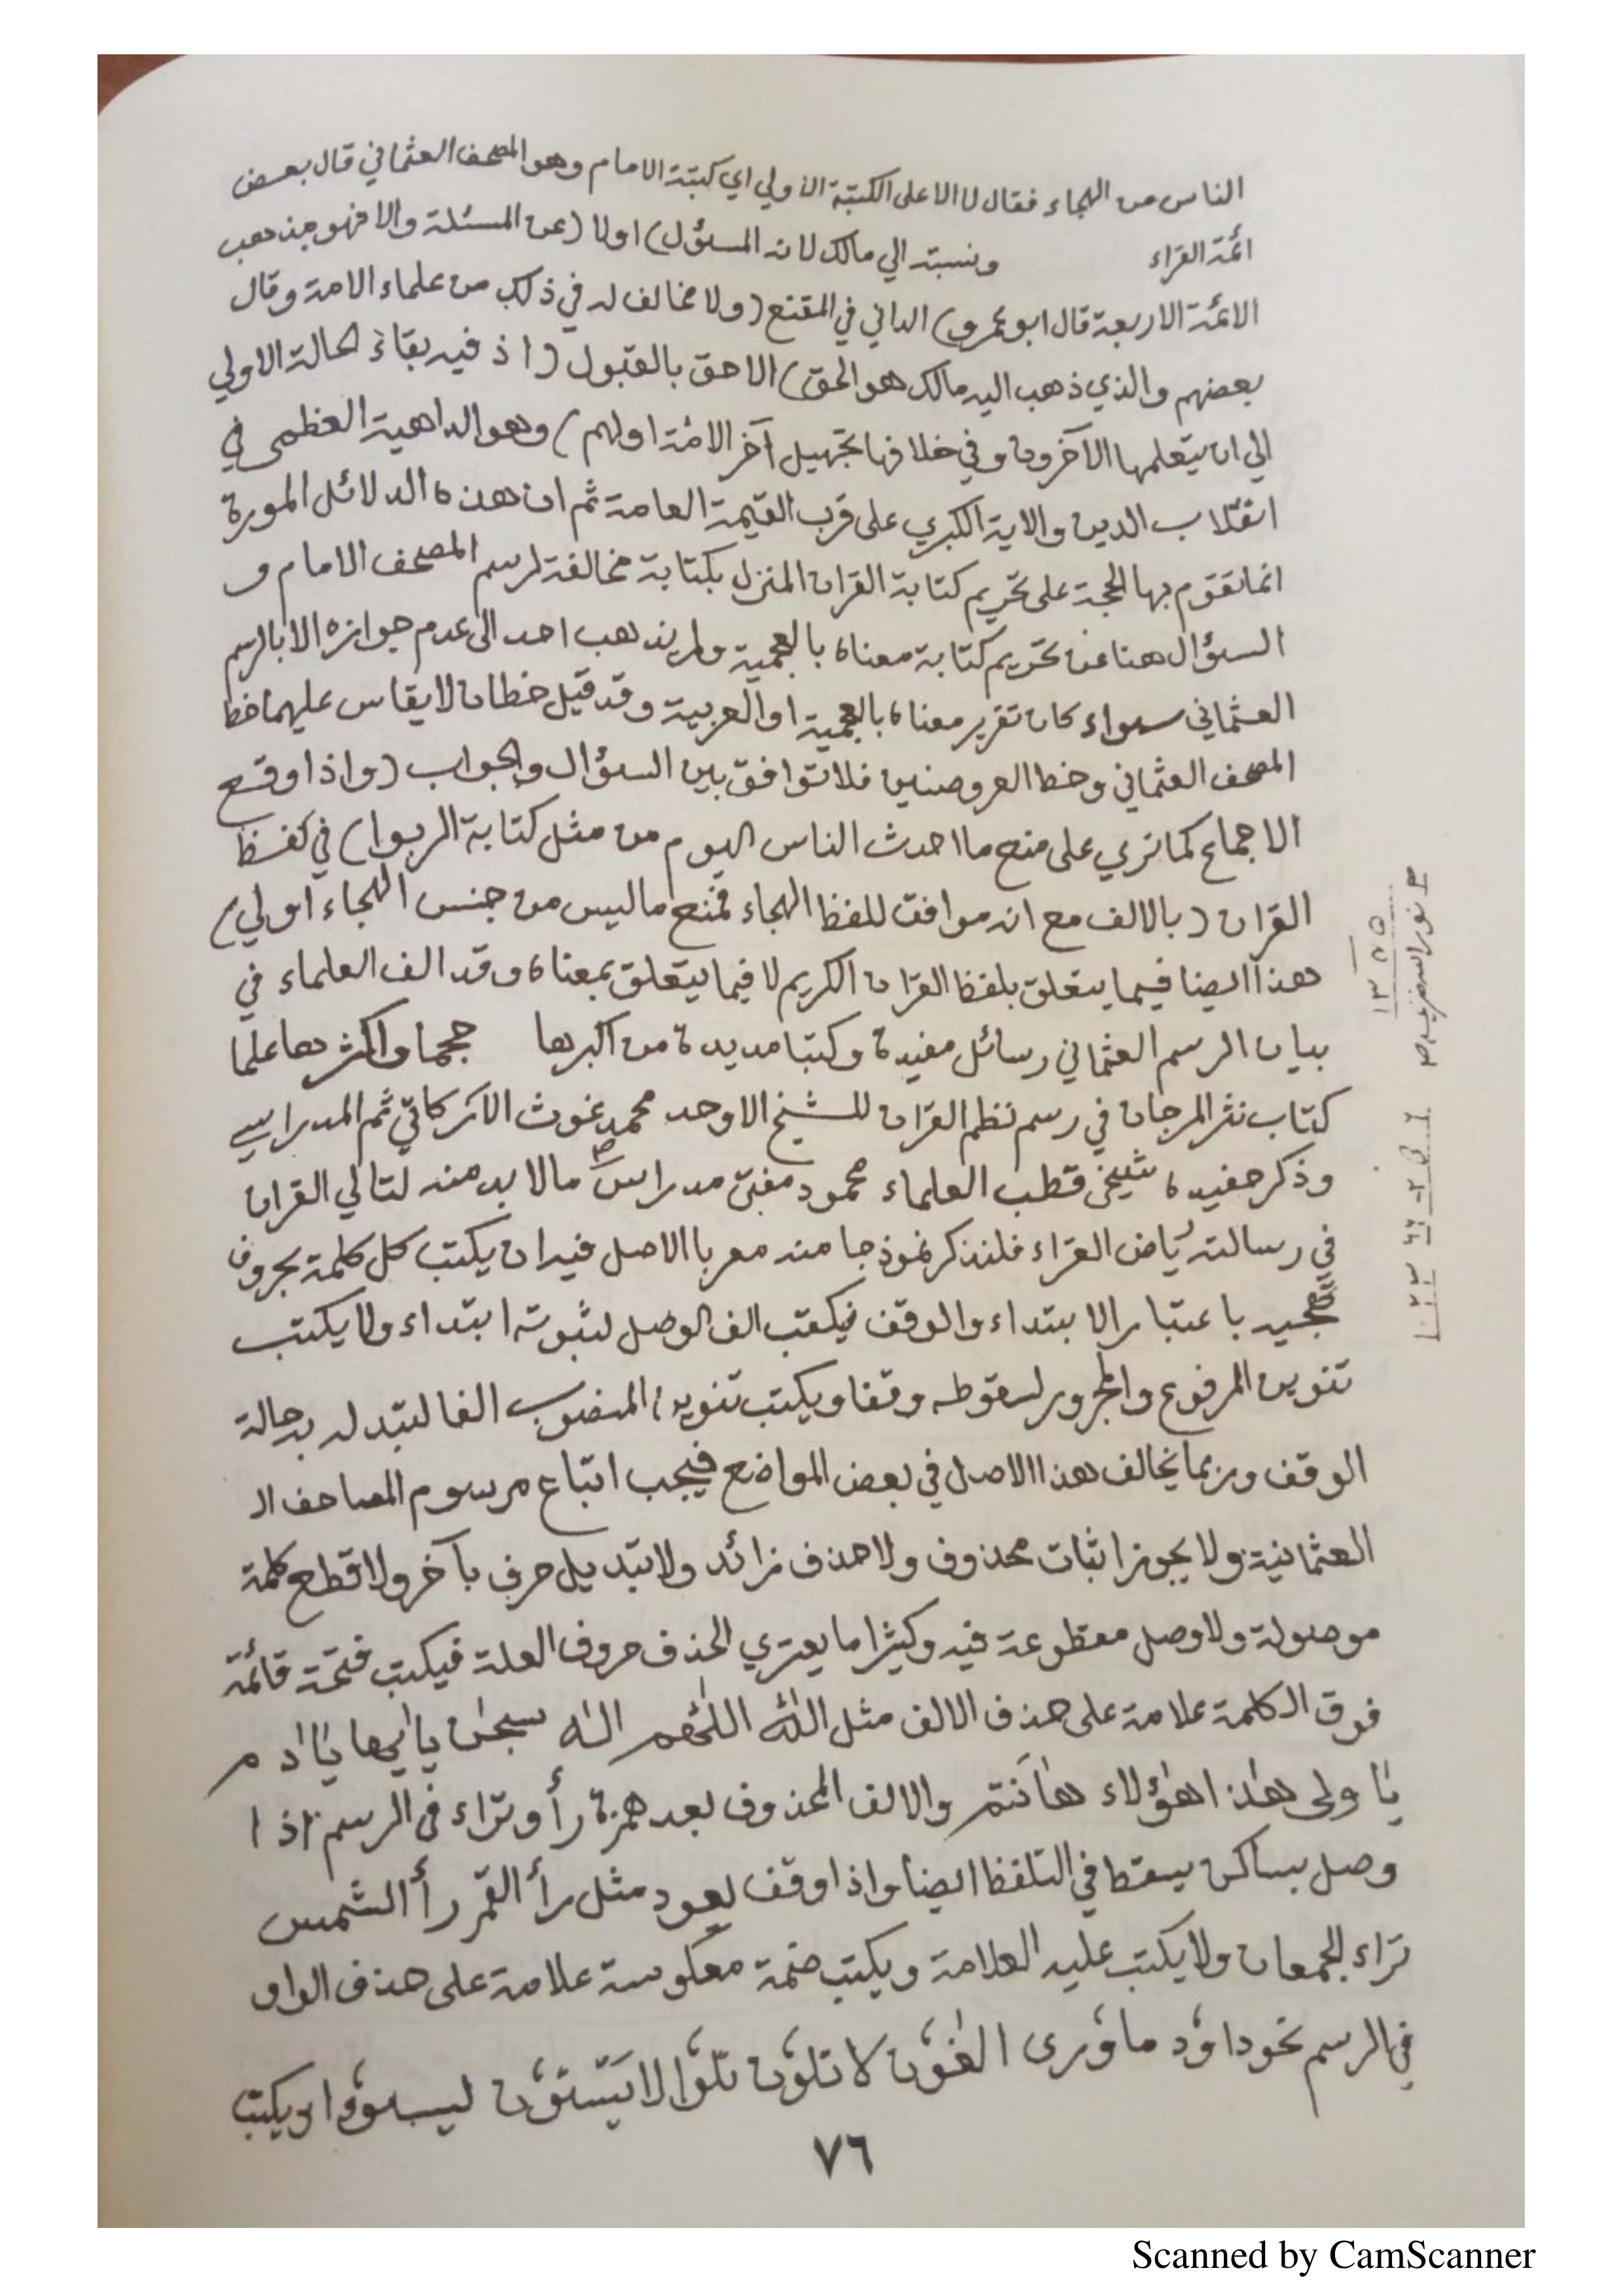 الناس من الهجاء فقال لا الا على الكتبة الاولي اي كتبة الامام وهو المصحف العثماني قال بعض
ائمة القراء ونسبته الي مالك لانه المسؤل) اولا (عن المسئلة والا فهو مذهب
الائمة الاربعة قال ابو عمرو) الداني في المقنع (ولا مخالف له في ذلك من علماء الامة وقال
بعضهم والذي ذهب اليه مالك هو الحق) الاحق بالقبول (اذ فيه بقاء الحالة الاولي
الي ان يتعلمها الآخرون وفي خلافها تجهيل آخر الامة اولهم) وهو الداهية العظمى في
انقلاب الدين والاية الكبري على قرب القيمة العامة ثم ان هذه الدلائل المورة
انما تقوم بها الحجة على تحريم كتابة القران المنزل بكتابة مخالفة لرسم المصحف الامام و
السؤال هنا عن تحريم كتابة معناه بالعجمية ولم يذهب احد الى عدم جوازه الا بالرسم
العثماني سواء كان تقرير معناه بالعجمية او العربية وقد قيل خطان لا يقاس عليهما خط
المصحف العثماني وخط العروضيين فلا توافق بين السؤال والجواب (واذا وقع
الاجماع كما تري على منع ما احدث الناس اليوم من مثل كتابة الربوا) في لفظ
القران (بالالف مع انه موافق للفظ الهجاء فمنع ما ليس من جنس الهجاء اولي)
هذا ايضا فيما يتعلق بلفظ القران الكريم لا فيما يتعلق بمعناه وقد الف العلماء في
بيان الرسم العثماني رسائل مفيدة وكتبا مديدة من اكبرها حجما واكثرها علما
كتاب نثر المرجان في رسم نظم القران للشيخ الاوحد محمد غوث الاركاتي ثم المدراسي
وذكر حفيده شيخي قطب العلماء محمود مفتي مدراس مالا بد منه لتالي القران
في رسالته رياض القراء فلنذكر نموذجا منه معربا الاصل فيه ان يكتب كل كلمة بحروف
تهجيه باعتبار الابتداء والوقف فيكتب الف الوصل لثبوته ابتداء ولا يكتب
تنوين المرفوع والمجرور لسقوطه وقفا ويكتب تنوين المنصوب الفا لتبدله به حالة
الوقف وربما يخالف هذا الاصل في بعض المواضع فيجب اتباع مرسوم المصاحف ال
العثمانية ولا يجوز اثبات محذوف ولا حذف زائد ولا تبديل حرف بآخر ولا قطع كلمة
موصولة ولا وصل مقطوعة فيه وكثيرا ما يعتري الحذف حروف العلة فيكتب فتحة قائمة
فوق الكلمة علامة على حذف الالف مثل اللّٰه اللّٰهم الٰه سبحٰن يا ايها يٰاادم
يٰاولى هٰذا هٰؤلاء هٰاَنتم والالف المحذوف بعد همزة رأ وترٰاء في الرسم اذا
وصل بساكن يسقط في التلفظ ايضا واذا وقف يعود مثل رأ القمر رأ الشمس
ترٰاء الجمعان ولا يكتب عليه العلامة ويكتب ضمة معكوسة علامة على حذف الواو
في الرسم نحو داوٗد ماوٗرى الغٰوٗن لا تلوٗن تلوٗا لا يَستوٗن ليسوٗءا ويكتب
٧٦
١٣٥٥
Scanned by CamScanner